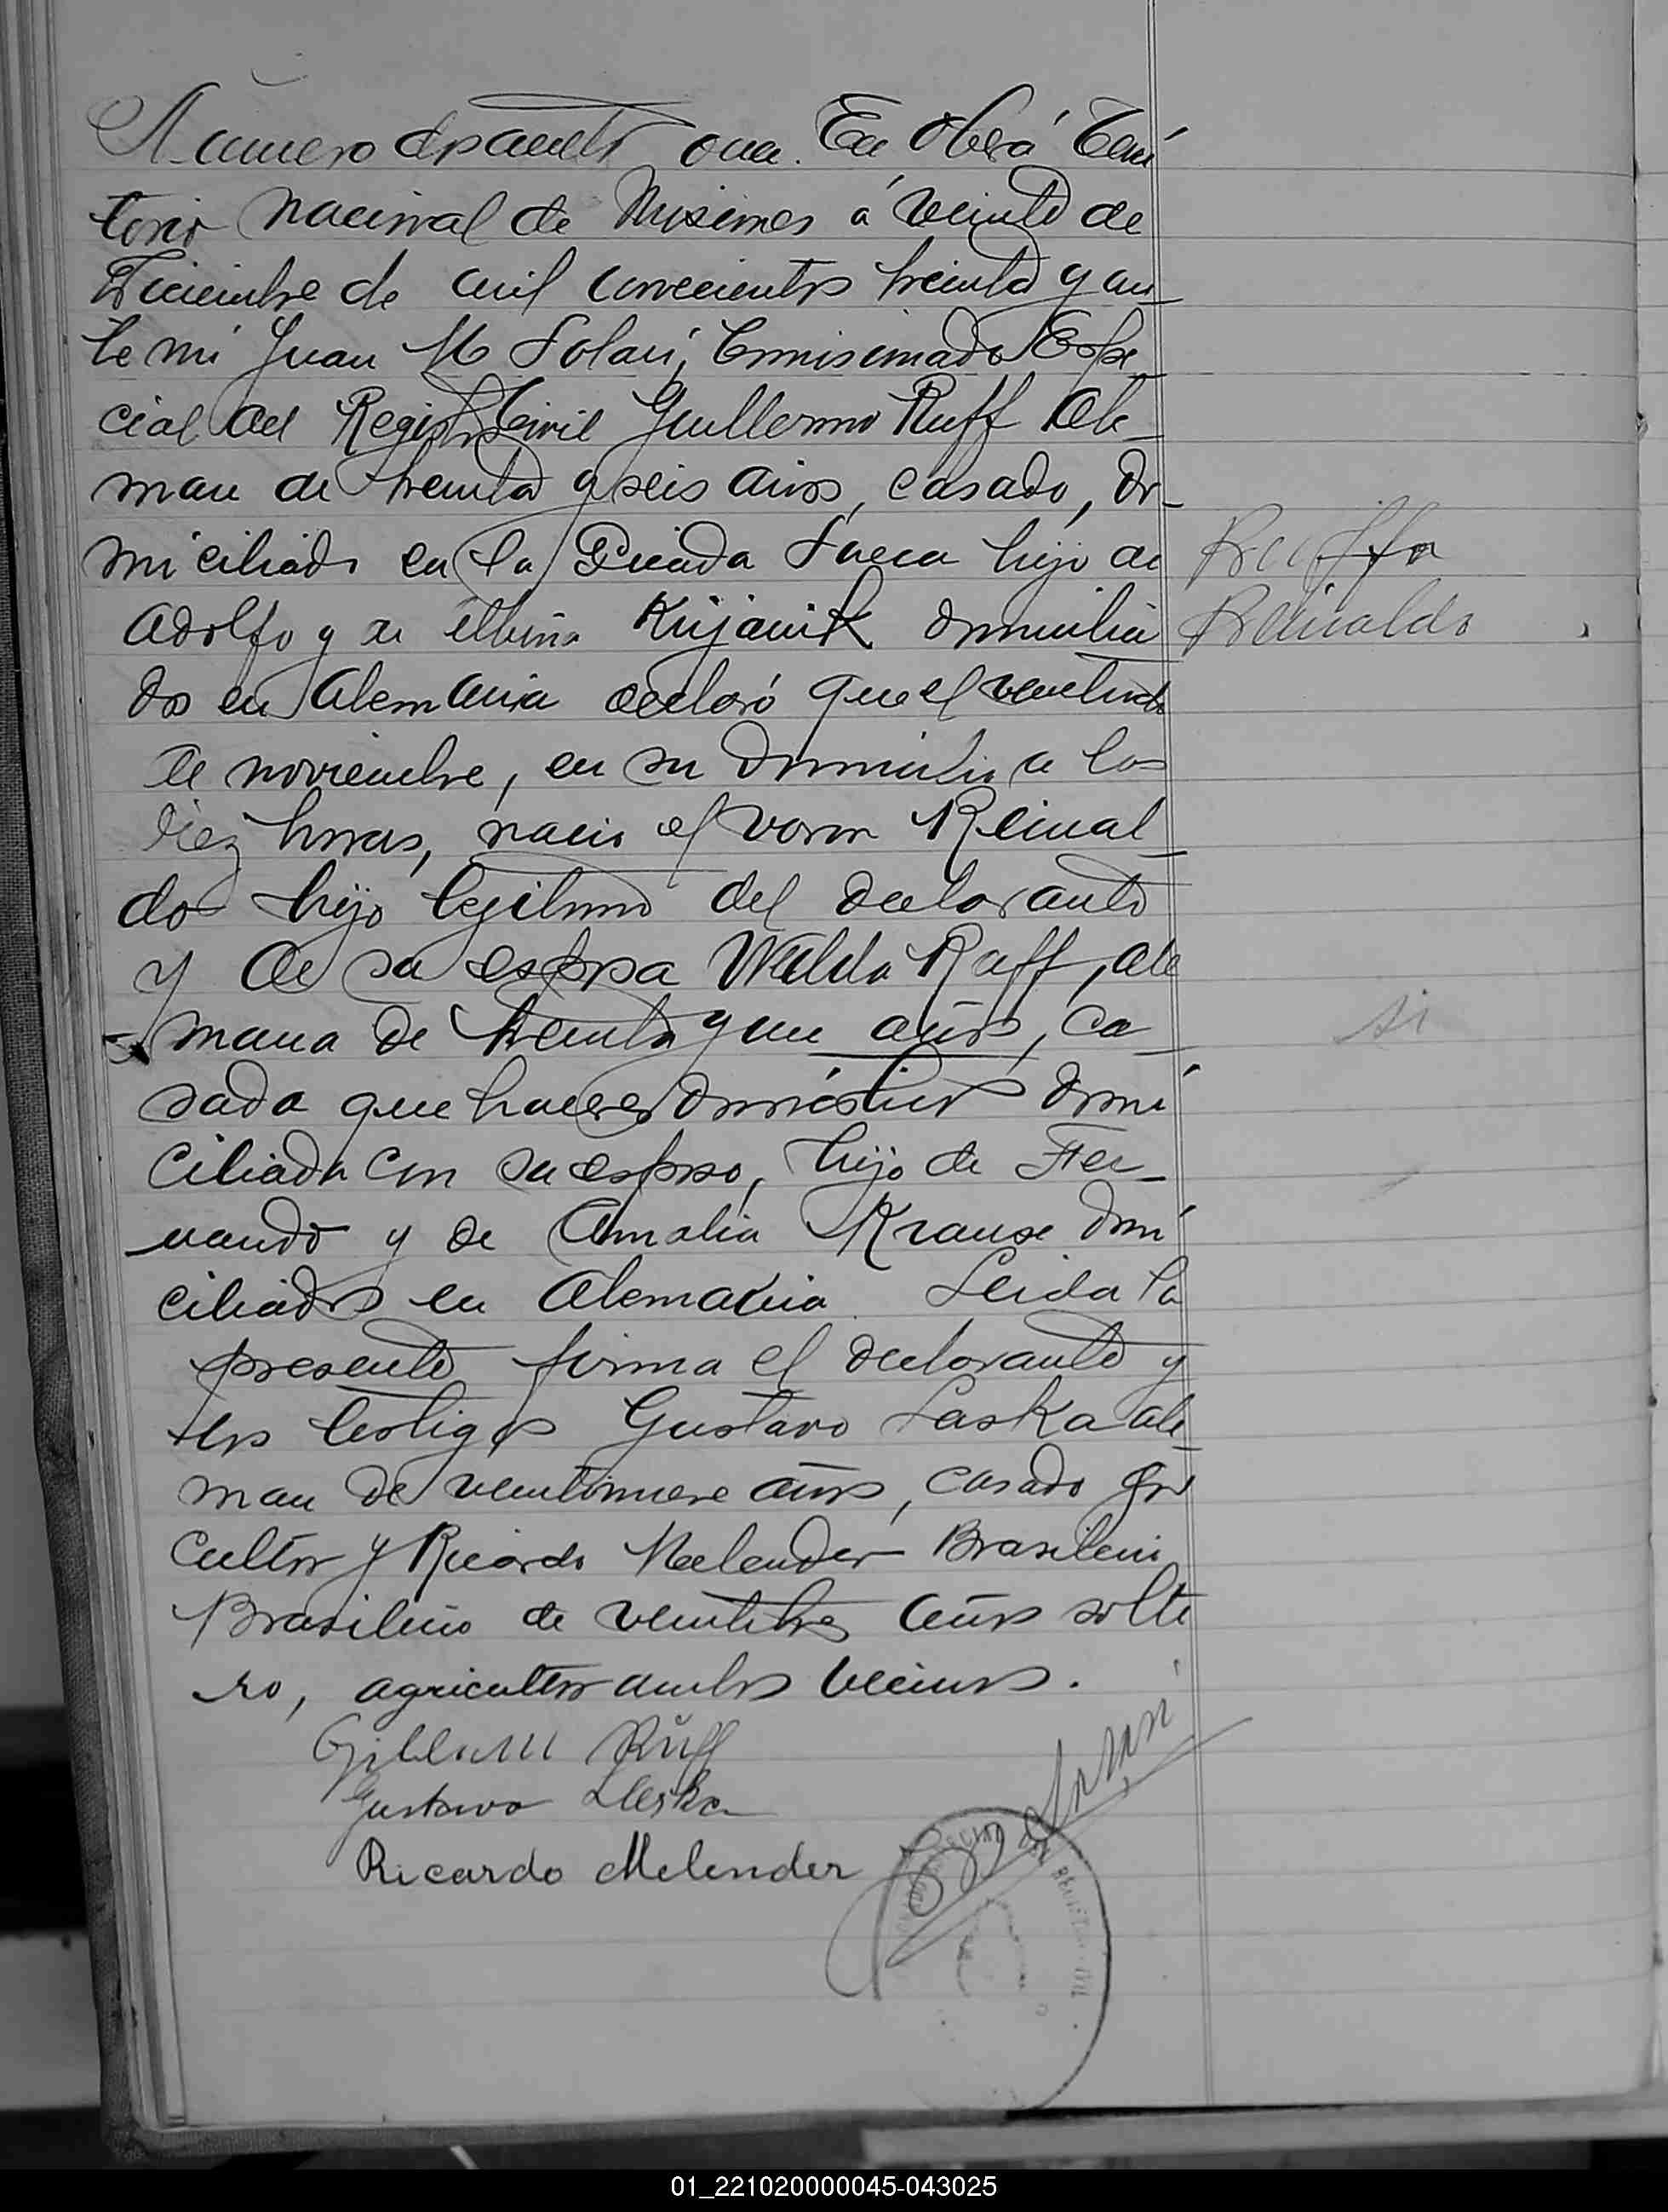 Número
En Oberá Terri
torio nacional de Misiones á veinte de
Diciembre de mil novecientos treinta y an
te mi Juan M Solari, Comisionado Espe
cial del Registro Civil Guillermo Ruff Ale
man de treinta y seis años, casado, do-
miciliado en la Picada Sueca hijo de
Adolfo y de Kujanik domicilia
dos en Alemania declaró que el
de noviembre, en su domicilio a las
diez horas, nacio el varon Reinal
do hijo legitimo del declarante
y de su esposa Walda Ruff, ale
mana de treinta y un años, ca
sada que haceres domésticos domi
ciliada con su esposo, hijo de Fer-
nando y de Amalia Krause domi
ciliados en Alemania. Leida la
presente firma el declarante y
los testigos Gustavo Laska ale-
man de años, casado agri
cultor y Ricardo Melender Brasileño
Brasileño de veintitres años solte
ro, agricultor ambos vecinos.
Ruff
Reinaldo
si
Ruff
Gustavo
Ricardo Melender
01_221020000045-043025